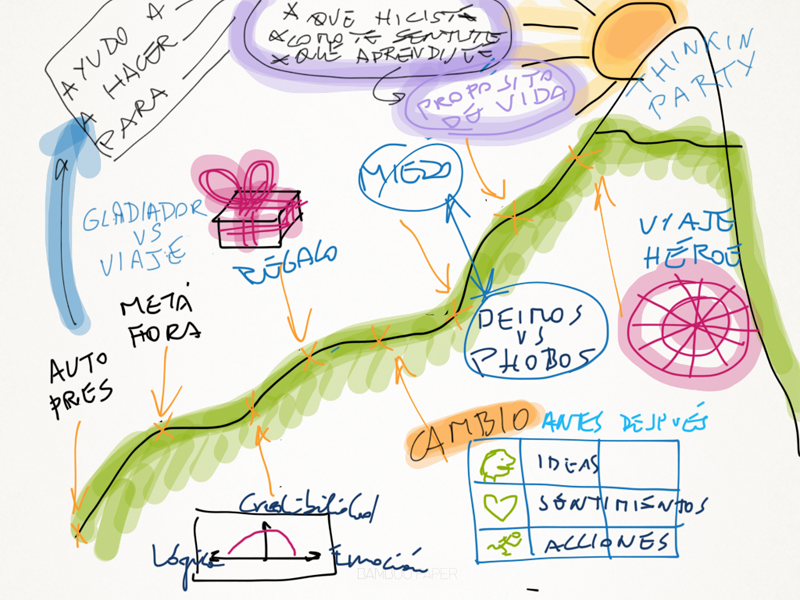 AYUDO A
A HACER
PARA
* QUE HICISTE
* COMO TE SENTISTE
* QUE APRENDISTE
PROPÓSITO
DE VIDA
THINKIN
PARTY
GLADIADOR
VS
VIAJE
REGALO
MIEDO
VIAJE
HÉROE
META
FORA
AUTO
PRES
DEIMOS
VS
PHOBOS
CAMBIO
ANTES DESPUÉS
IDEAS
SENTIMIENTOS
ACCIONES
Credibilidad
Lógica
Emoción
BAMBOO PAPER